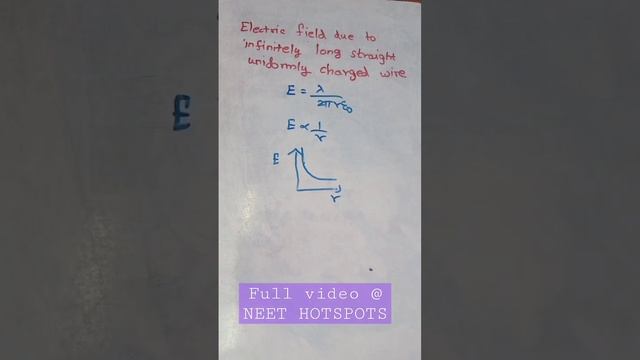 Electric field due to
infinitely long straight
uniformly charged wire
E = λ/2πrε₀
E ∝ 1/r
E
r
E
Full video @
NEET HOTSPOTS